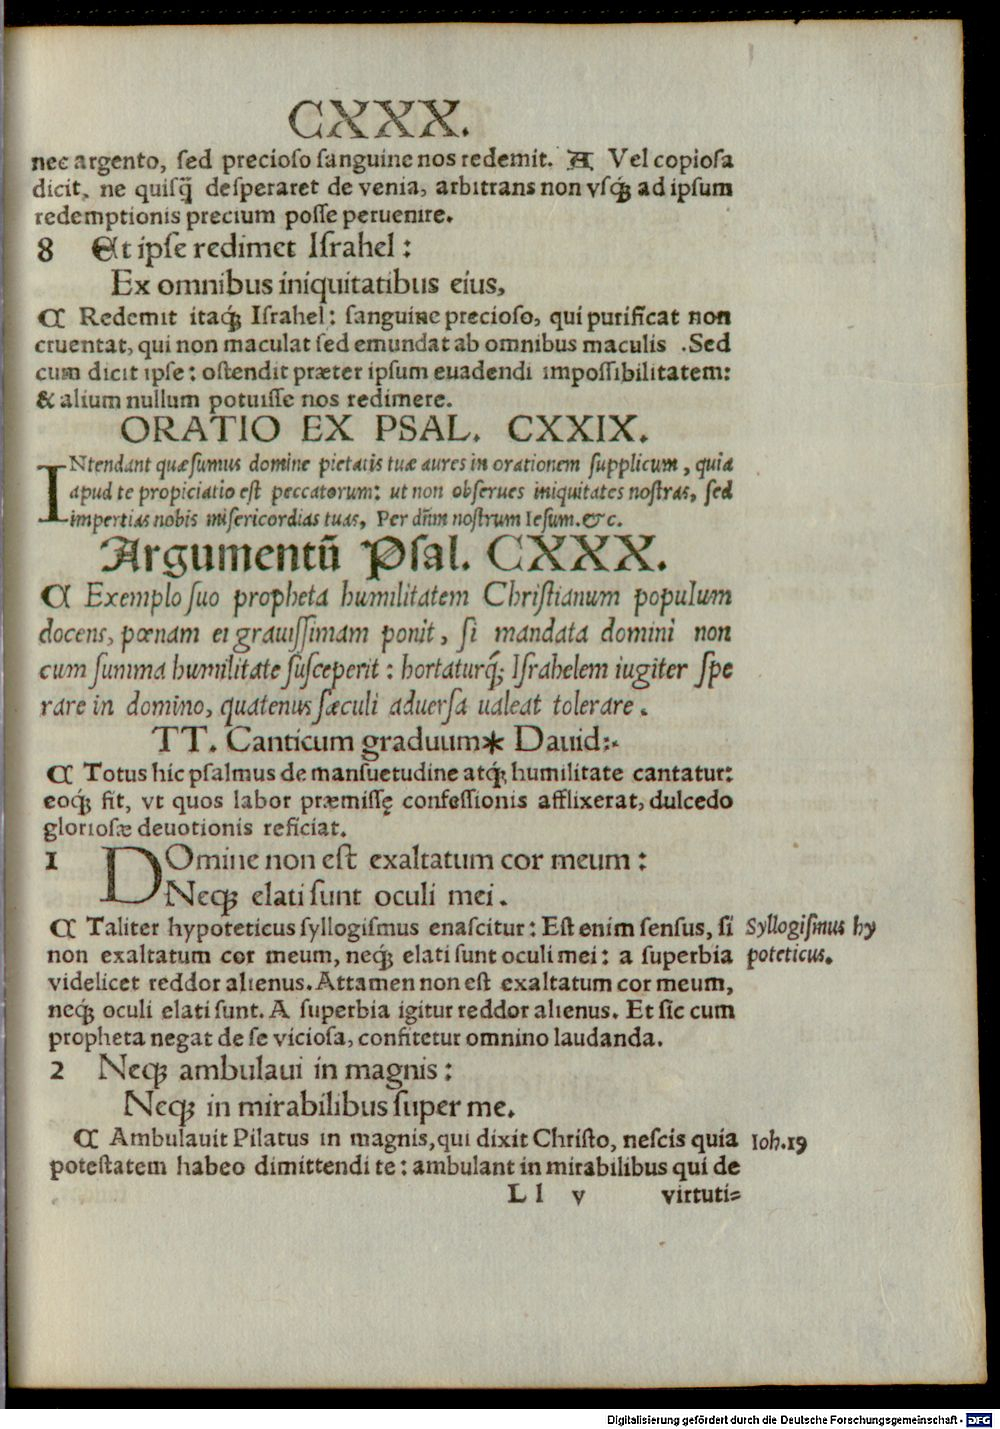 CXXX.
nec argento, sed precioso sanguine nos redemit. A Vel copiosa
dicit, ne quisq̃ desperaret de venia, arbitrans non vsqꝫ ad ipsum
redemptionis precium posse peruenire.
8 Et ipse redimet Israhel:
Ex omnibus iniquitatibus eius,
¶ Redemit itaqꝫ Israhel: sanguine precioso, qui purificat non
cruentat, qui non maculat sed emundat ab omnibus maculis .Sed
cum dicit ipse: ostendit præter ipsum euadendi impossibilitatem:
& alium nullum potuisse nos redimere.
ORATIO EX PSAL. CXXIX.
INtendant quæsumus domine pietatis tuæ aures in orationem supplicum, quia
apud te propiciatio est peccatorum: ut non obserues iniquitates nostras, sed
impertias nobis misericordias tuas, Per dñm nostrum Iesum.&c.
Argumentũ Psal. CXXX.
¶ Exemplo suo propheta humilitatem Christianum populum
docens, pœnam et grauissimam ponit, si mandata domini non
cum summa humilitate susceperit: hortaturqꝫ Israhelem iugiter spe
rare in domino, quatenus sæculi aduersa ualeat tolerare.
TT. Canticum graduum* Dauid:·
¶ Totus hic psalmus de mansuetudine atqꝫ humilitate cantatur:
eoqꝫ fit, vt quos labor præmissę confessionis afflixerat, dulcedo
gloriosæ deuotionis reficiat.
1 DOmine non est exaltatum cor meum:
Neqꝫ elati sunt oculi mei.
¶ Taliter hypoteticus syllogismus enascitur: Est enim sensus, si Syllogismus hy
non exaltatum cor meum, neqꝫ elati sunt oculi mei: a superbia poteticus.
videlicet reddor alienus. Attamen non est exaltatum cor meum,
neqꝫ oculi elati sunt. A superbia igitur reddor alienus. Et sic cum
propheta negat de se viciosa, confitetur omnino laudanda.
2 Neqꝫ ambulaui in magnis:
Neqꝫ in mirabilibus super me.
¶ Ambulauit Pilatus in magnis, qui dixit Christo, nescis quia Ioh.19
potestatem habeo dimittendi te: ambulant in mirabilibus qui de
L l v virtuti=
Digitalisierung gefördert durch die Deutsche Forschungsgemeinschaft - DFG